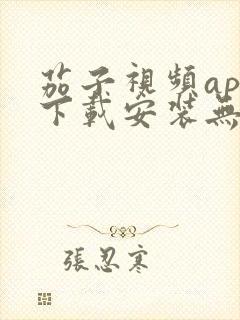 茄子視頻ap
下載安裝無
張忍寒